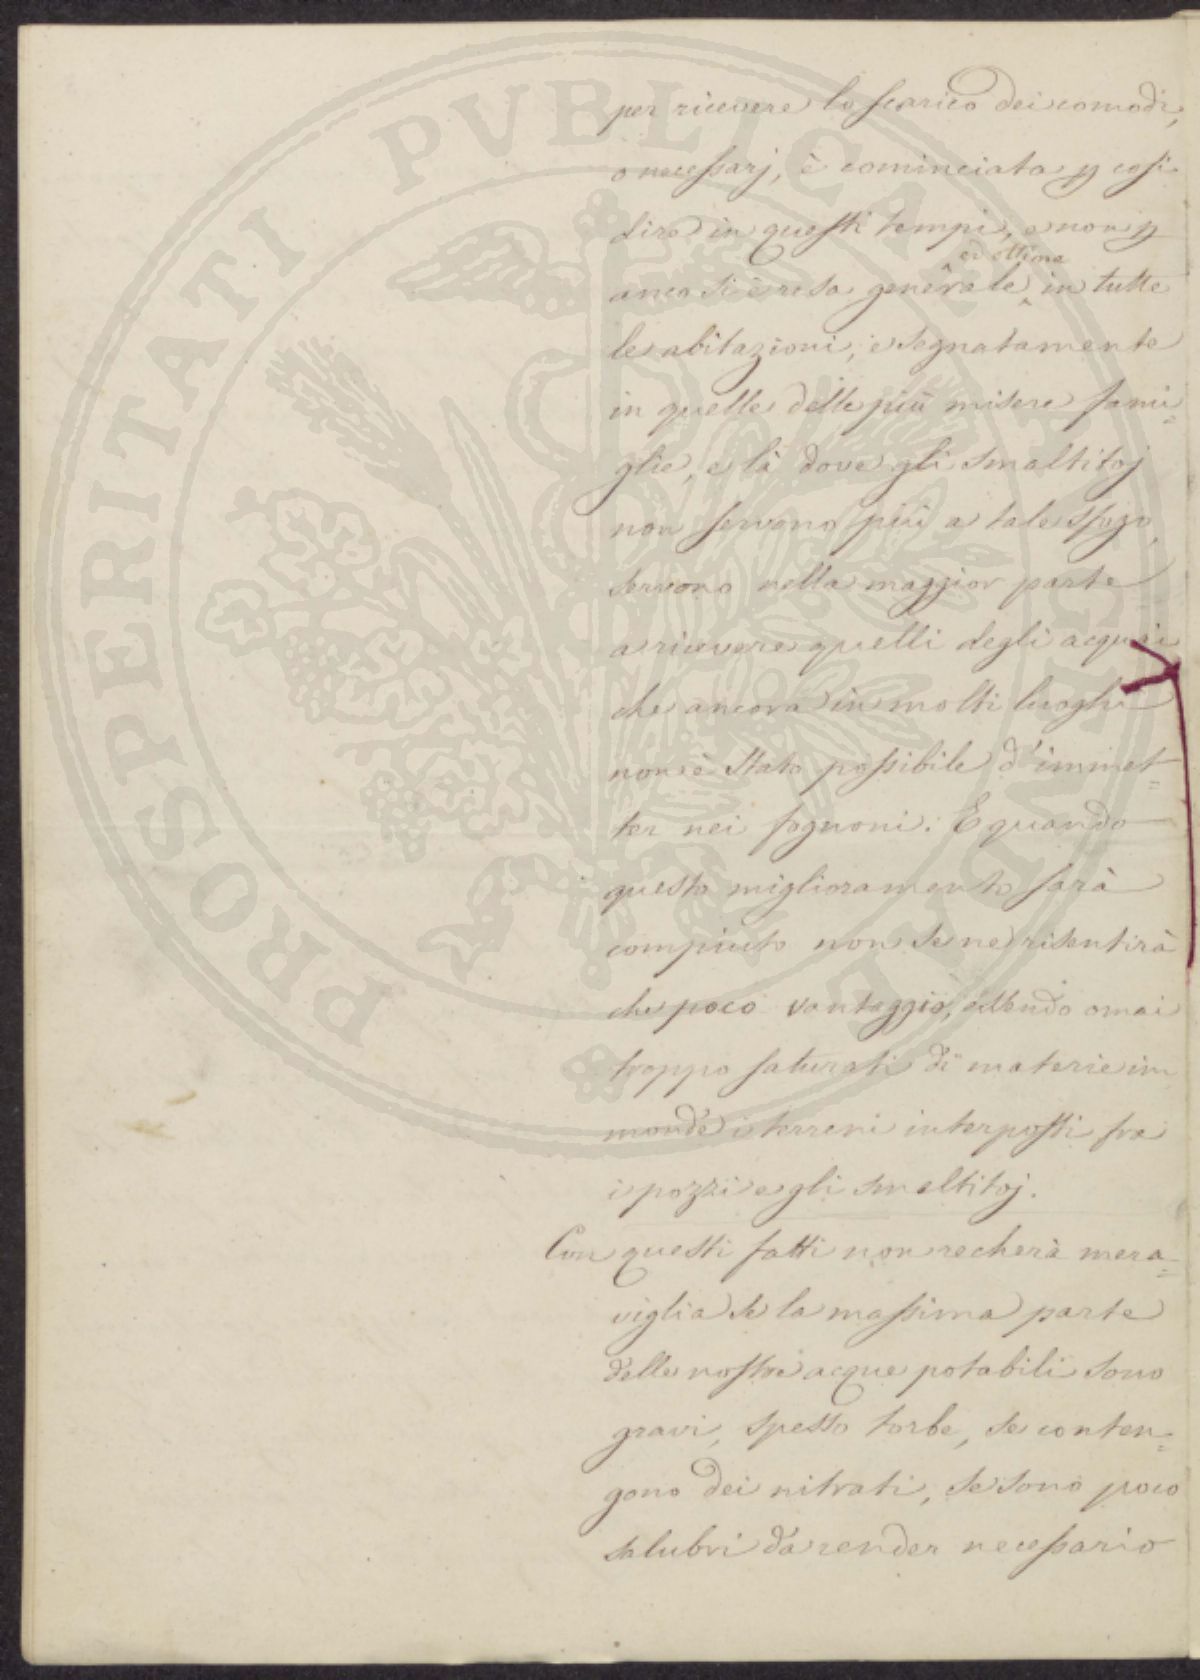 per ricevere lo scarico dei comodi,
o necessarj, è cominciata p cosi
dire in questi tempi, e non p
anco si è resa generale ed ottima in tutte
le abitazioni, e segnatamente
in quelle delle più misere fami=
glie, e là dove gli smaltitoj
non servono più a tale sfogo,
servono nella maggior parte
a ricevere quelli degli acquai
che ancora in molti luoghi
non è stato possibile d'immet=
ter nei fognoni. E quando
questo miglioramento sarà
compiuto non se ne risentirà
che poco vantaggio, essendo omai
troppo saturati di materie im
monde i terreni interposti fra
i pozzi e gli smaltitoj.
Con questi fatti non recherà mera=
viglia se la massima parte
delle nostre acque potabili sono
gravi, spesso torbe, se conten=
gono dei nitrati, se sono poco
salubri da render necessario
PROSPERITATI PVBLICAE AVGENDAE